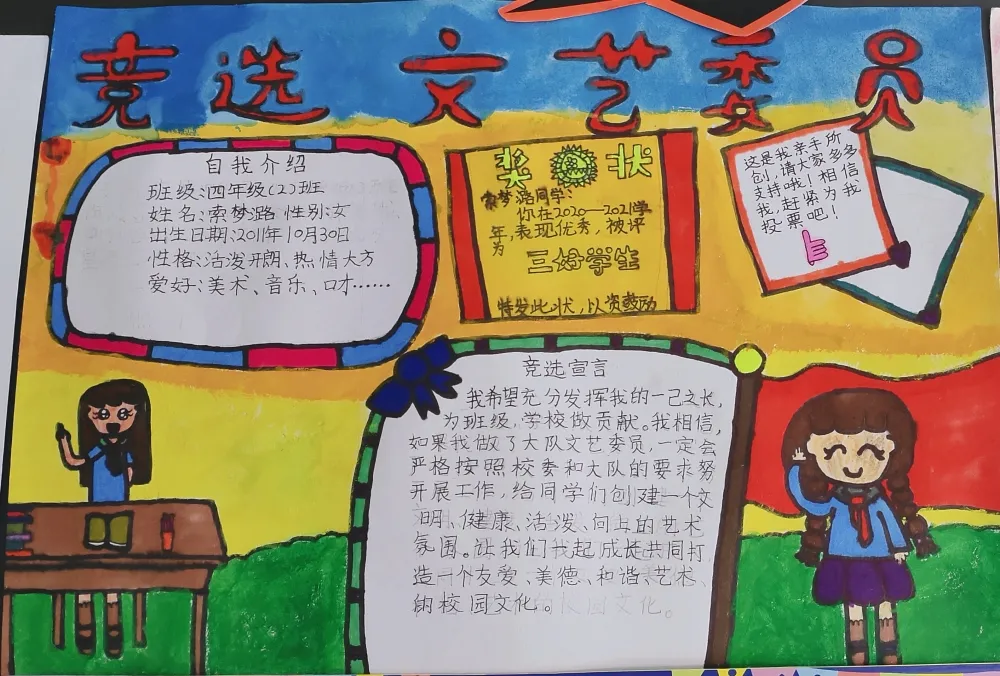 竞选文艺委员
自我介绍
班级:四年级(2)班
姓名:索梦潞 性别:女
出生日期:2011年10月30日
性格:活泼开朗、热情大方
爱好:美术、音乐、口才……
奖状
索梦潞同学:
你在2020—2021学
年,表现优秀,被评
为
三好学生
特发此状,以资鼓励
这是我亲手所
创,请大家多多
支持哦!相信
我,赶紧为我
投票吧!
竞选宣言
我希望充分发挥我的一己之长,
为班级,学校做贡献。我相信,
如果我做了大队文艺委员,一定会
严格按照校委和大队的要求努
开展工作,给同学们创建一个文
明、健康、活泼、向上的艺术
氛围。让我们我起成长共同打
造一个友爱、美德、和谐、艺术、
的校园文化。